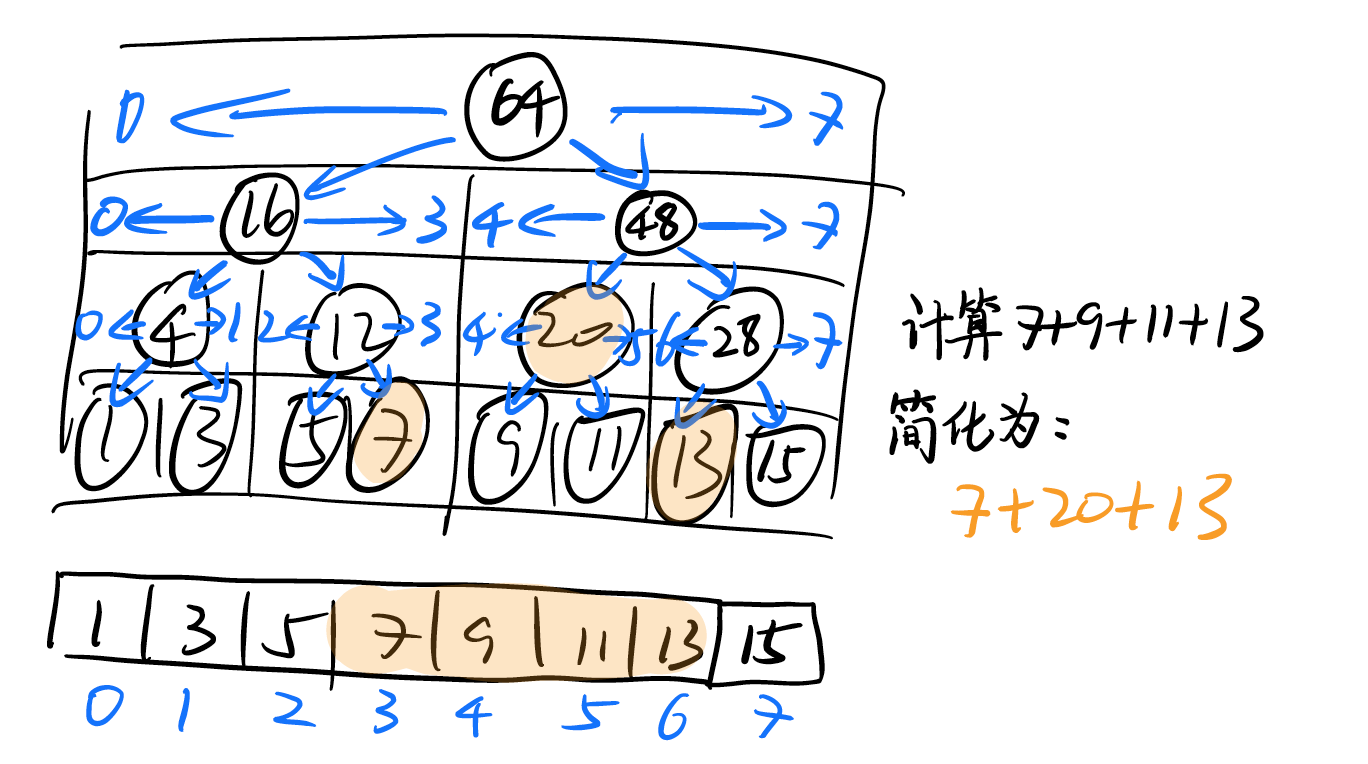 0 64 7
0 16 3 4 48 7
0 4 1 2 12 3 4 20 5 6 28 7
1 3 5 7 9 11 13 15
计算7+9+11+13
简化为：
7+20+13
1 3 5 7 9 11 13 15
0 1 2 3 4 5 6 7